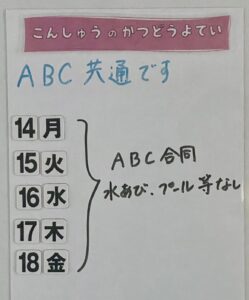 こんしゅうのかつどうよてい
ABC共通です
14月
15火
16水
17木
18金
ABC合同
水あび、プール等なし